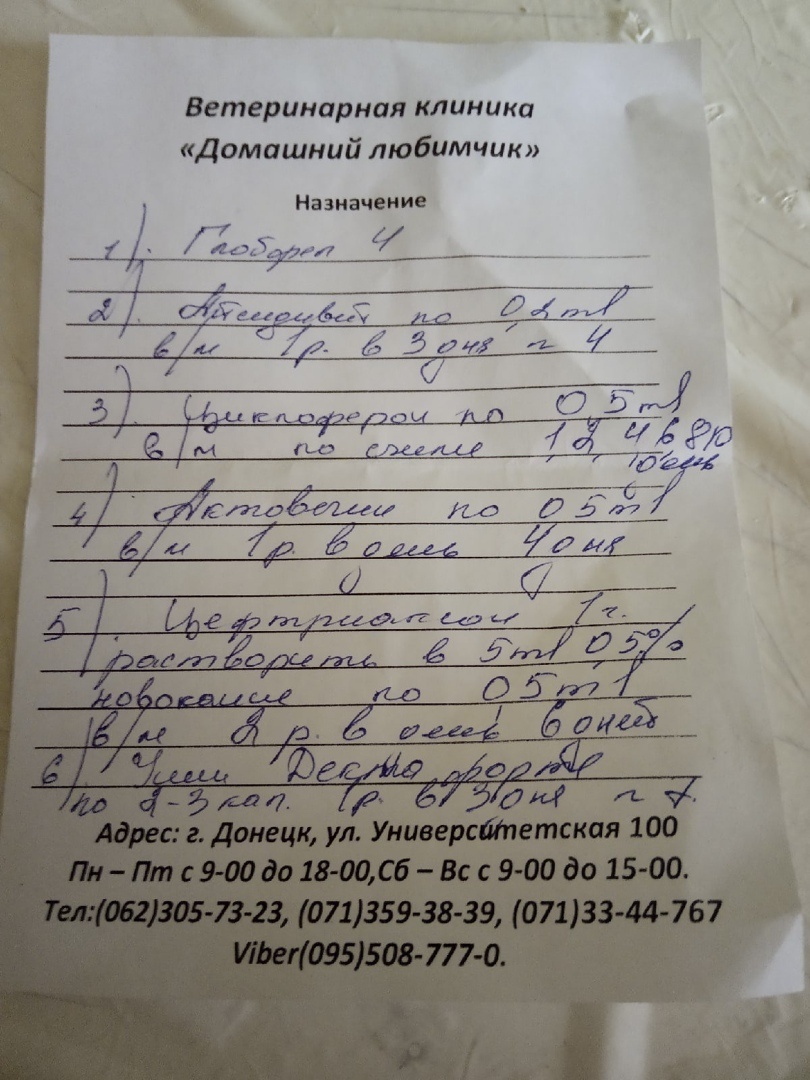 Ветеринарная клиника
«Домашний любимчик»
Назначение
1). Глобфел 4
2). по 0,2 ml
в/м 1р. в 3 дня 4
3). Циклоферон по 0,5 ml
в/м по схеме 1, 2, 4, 6, 8, 10
день
4) Актовегин по 0,5 ml
в/м 1р. в день 4 дня
5). Цефтриаксон 1г.
растворить в 5 ml 0,5%
новокаине по 0,5 ml
в/м 2 р. в день 6 дней
6). Уши Декта форте
по 2-3 кап. 1р. в 3 дня
Адрес: г. Донецк, ул. Университетская 100
Пн – Пт с 9-00 до 18-00,Сб – Вс с 9-00 до 15-00.
Тел:(062)305-73-23, (071)359-38-39, (071)33-44-767
Viber(095)508-777-0.